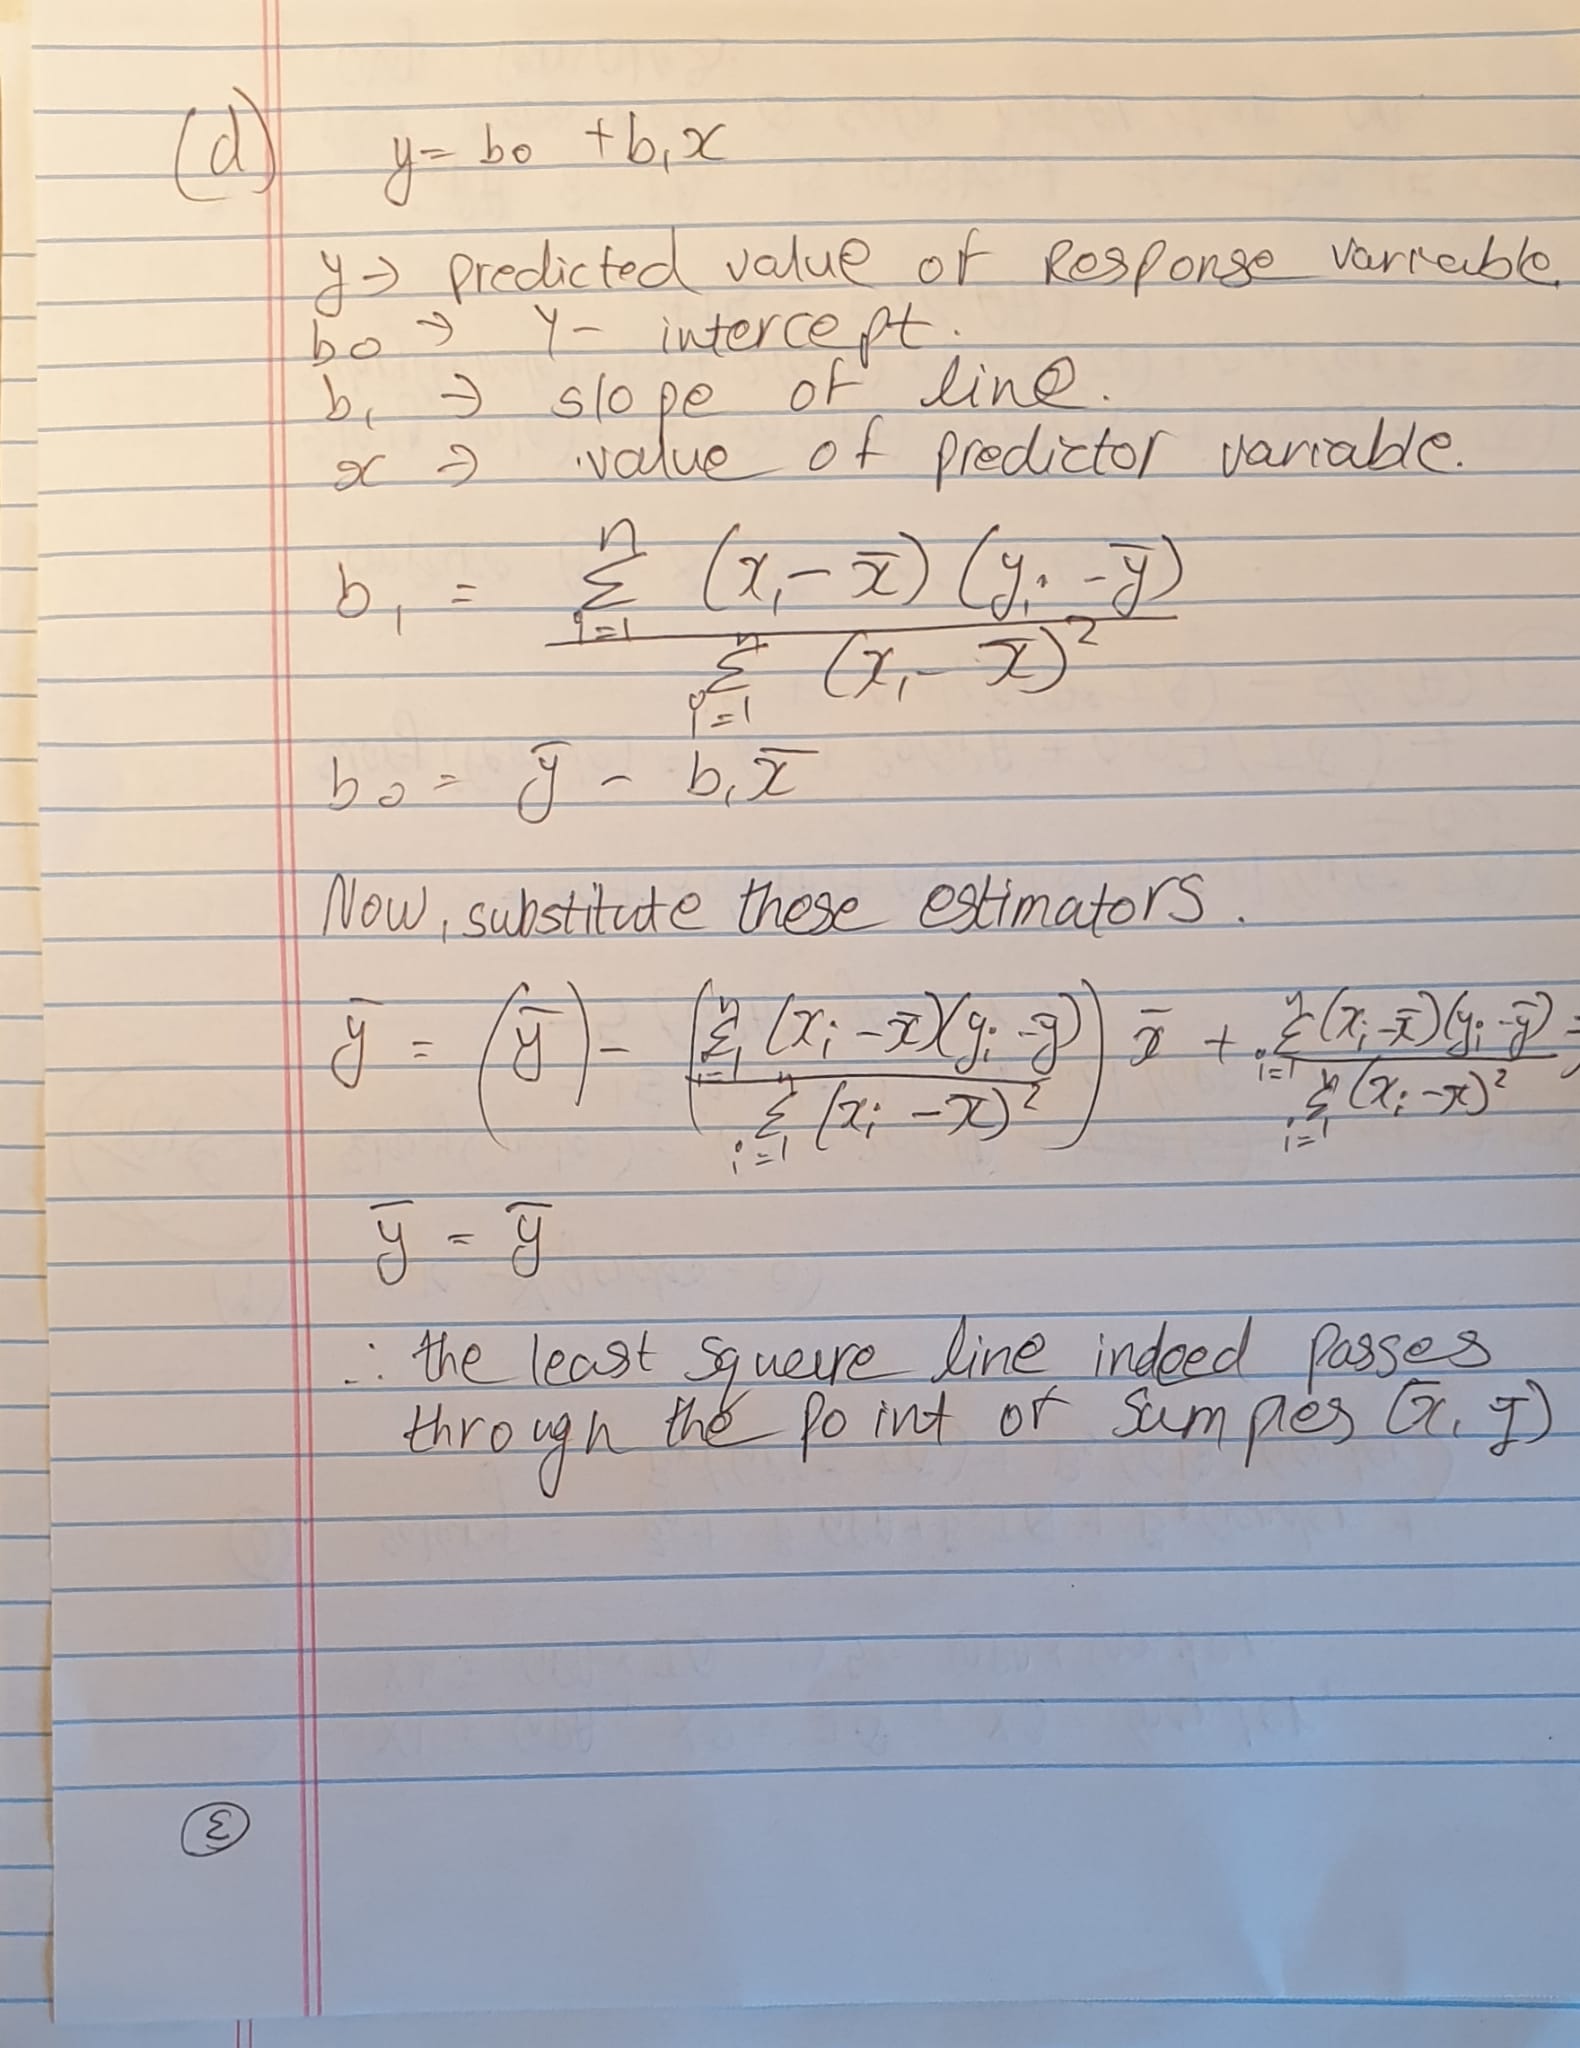 (d) y = b₀ + b₁x
y → predicted value of Response variable.
b₀ → Y- intercept.
b₁ → slope of line.
x → value of predictor variable.
b₁ = Σᵢ₌₁ⁿ (xᵢ - x̄) (yᵢ - ȳ) / Σᵢ₌₁ⁿ (xᵢ - x̄)²
b₀ = ȳ - b₁x̄
Now, substitute these estimators.
ȳ = (ȳ) - (Σᵢ₌₁ⁿ (xᵢ - x̄)(yᵢ - ȳ) / Σᵢ₌₁ⁿ (xᵢ - x̄)²) x̄ + Σᵢ₌₁ⁿ (xᵢ - x̄)(yᵢ - ȳ) / Σᵢ₌₁ⁿ (xᵢ - x̄)²
ȳ = ȳ
∴ the least square line indeed passes
through the point of samples (x̄, ȳ)
3